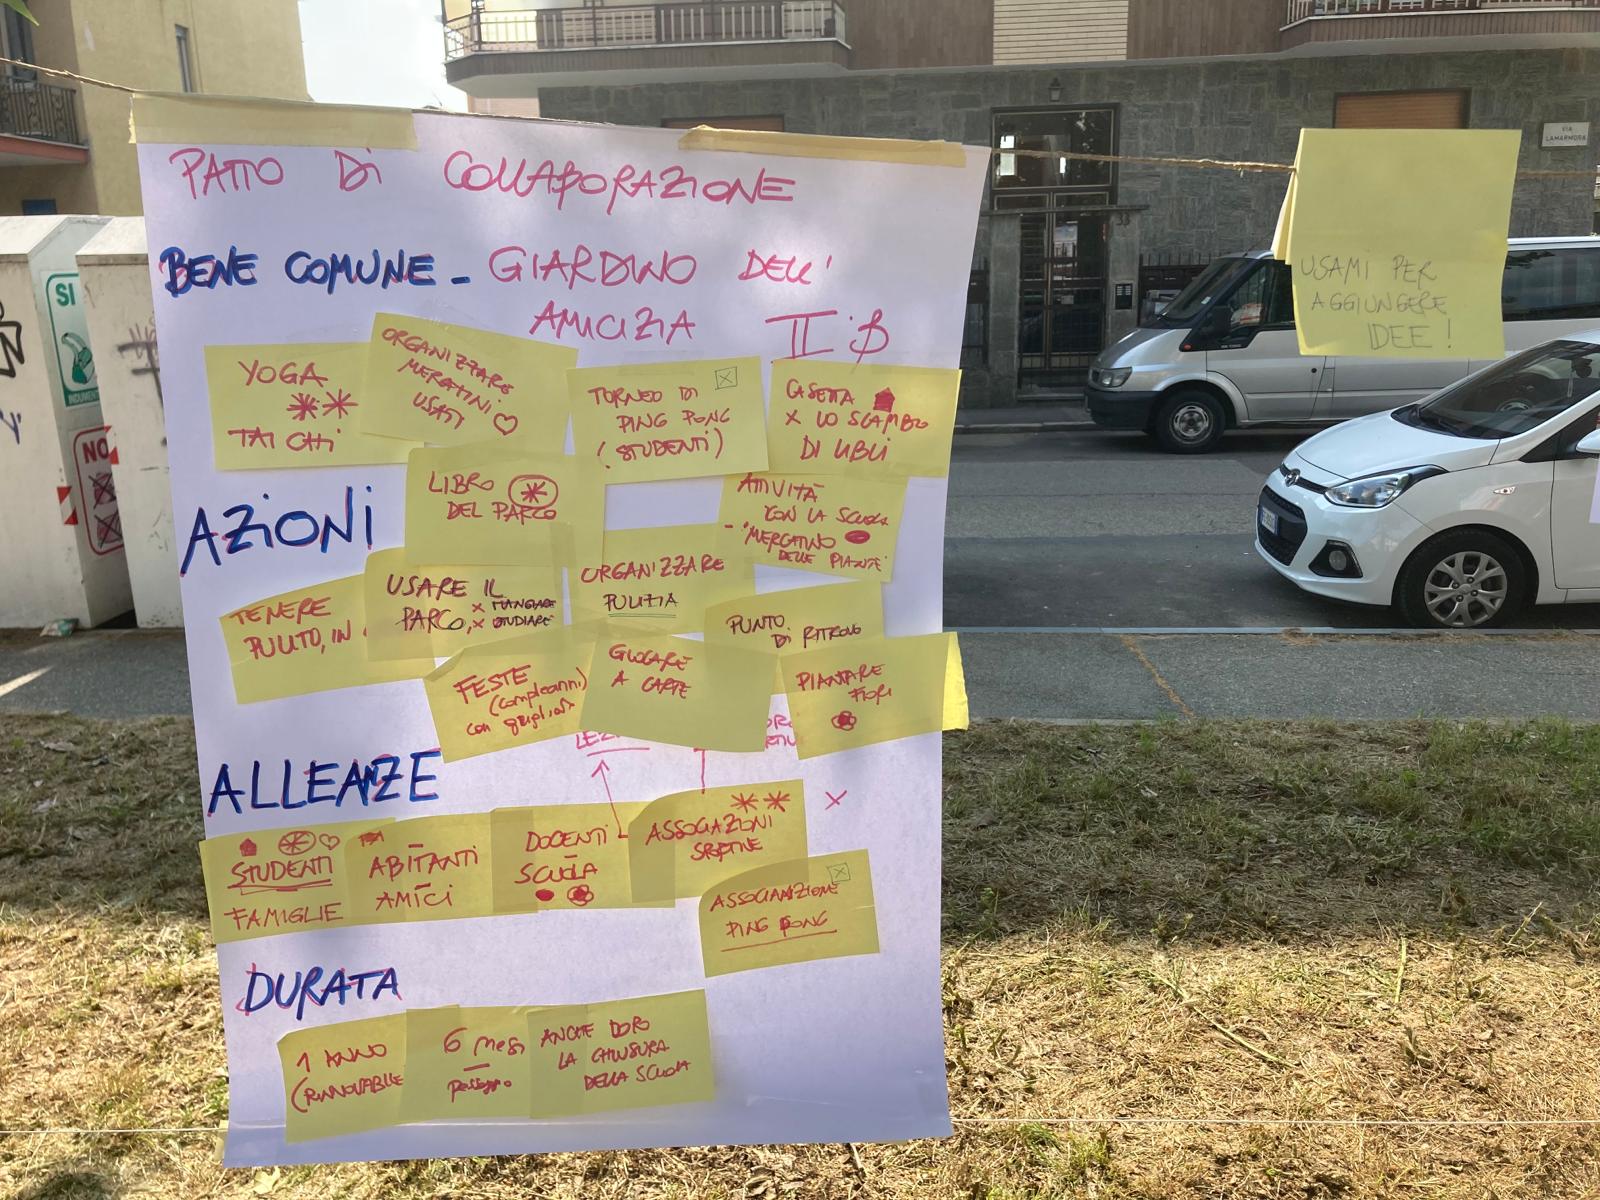 PATTO Di COLLABORAZIONE
BENE COMUNE - GIARDINO DELL'
AMICIZIA II B
YOGA
TAI CHI
ORGANIZZARE
MERCATINI
USATI
TORNEO DI
PING PONG
(STUDENTI)
CASETTA
x LO SCAMBIO
DI LIBLI
AZIONI
LIBRO
DEL PARCO
ATIVITÀ
CON LA SCUOLA
- MERCATINO
DELLE PIANTE
TENERE
PULITO, IN
USARE IL
PARCO, x MANGIARE
x STUDIARE
ORGANIZZARE
PULIZIA
PUNTO
DI RITROVO
FESTE
(compleanni)
con
GIOCARE
A CARTE
PIANTARE
FIORI
ALLEANZE
STUDENTI
FAMIGLIE
ABITANTI
AMICI
DOCENTI
SCUOLA
ASSOCIAZIONI
SPORTIVE
x
ASSOCIAZIONE
PING PONG
DURATA
1 ANNO
(RINNOVABILE
6 mesi
ANCHE DOPO
LA CHIUSURA
DELLA SCUOLA
USAMI PER
AGGIUNGERE
IDEE!
VIA
LAMARMORA
33
SI
INDUMENTI
NO